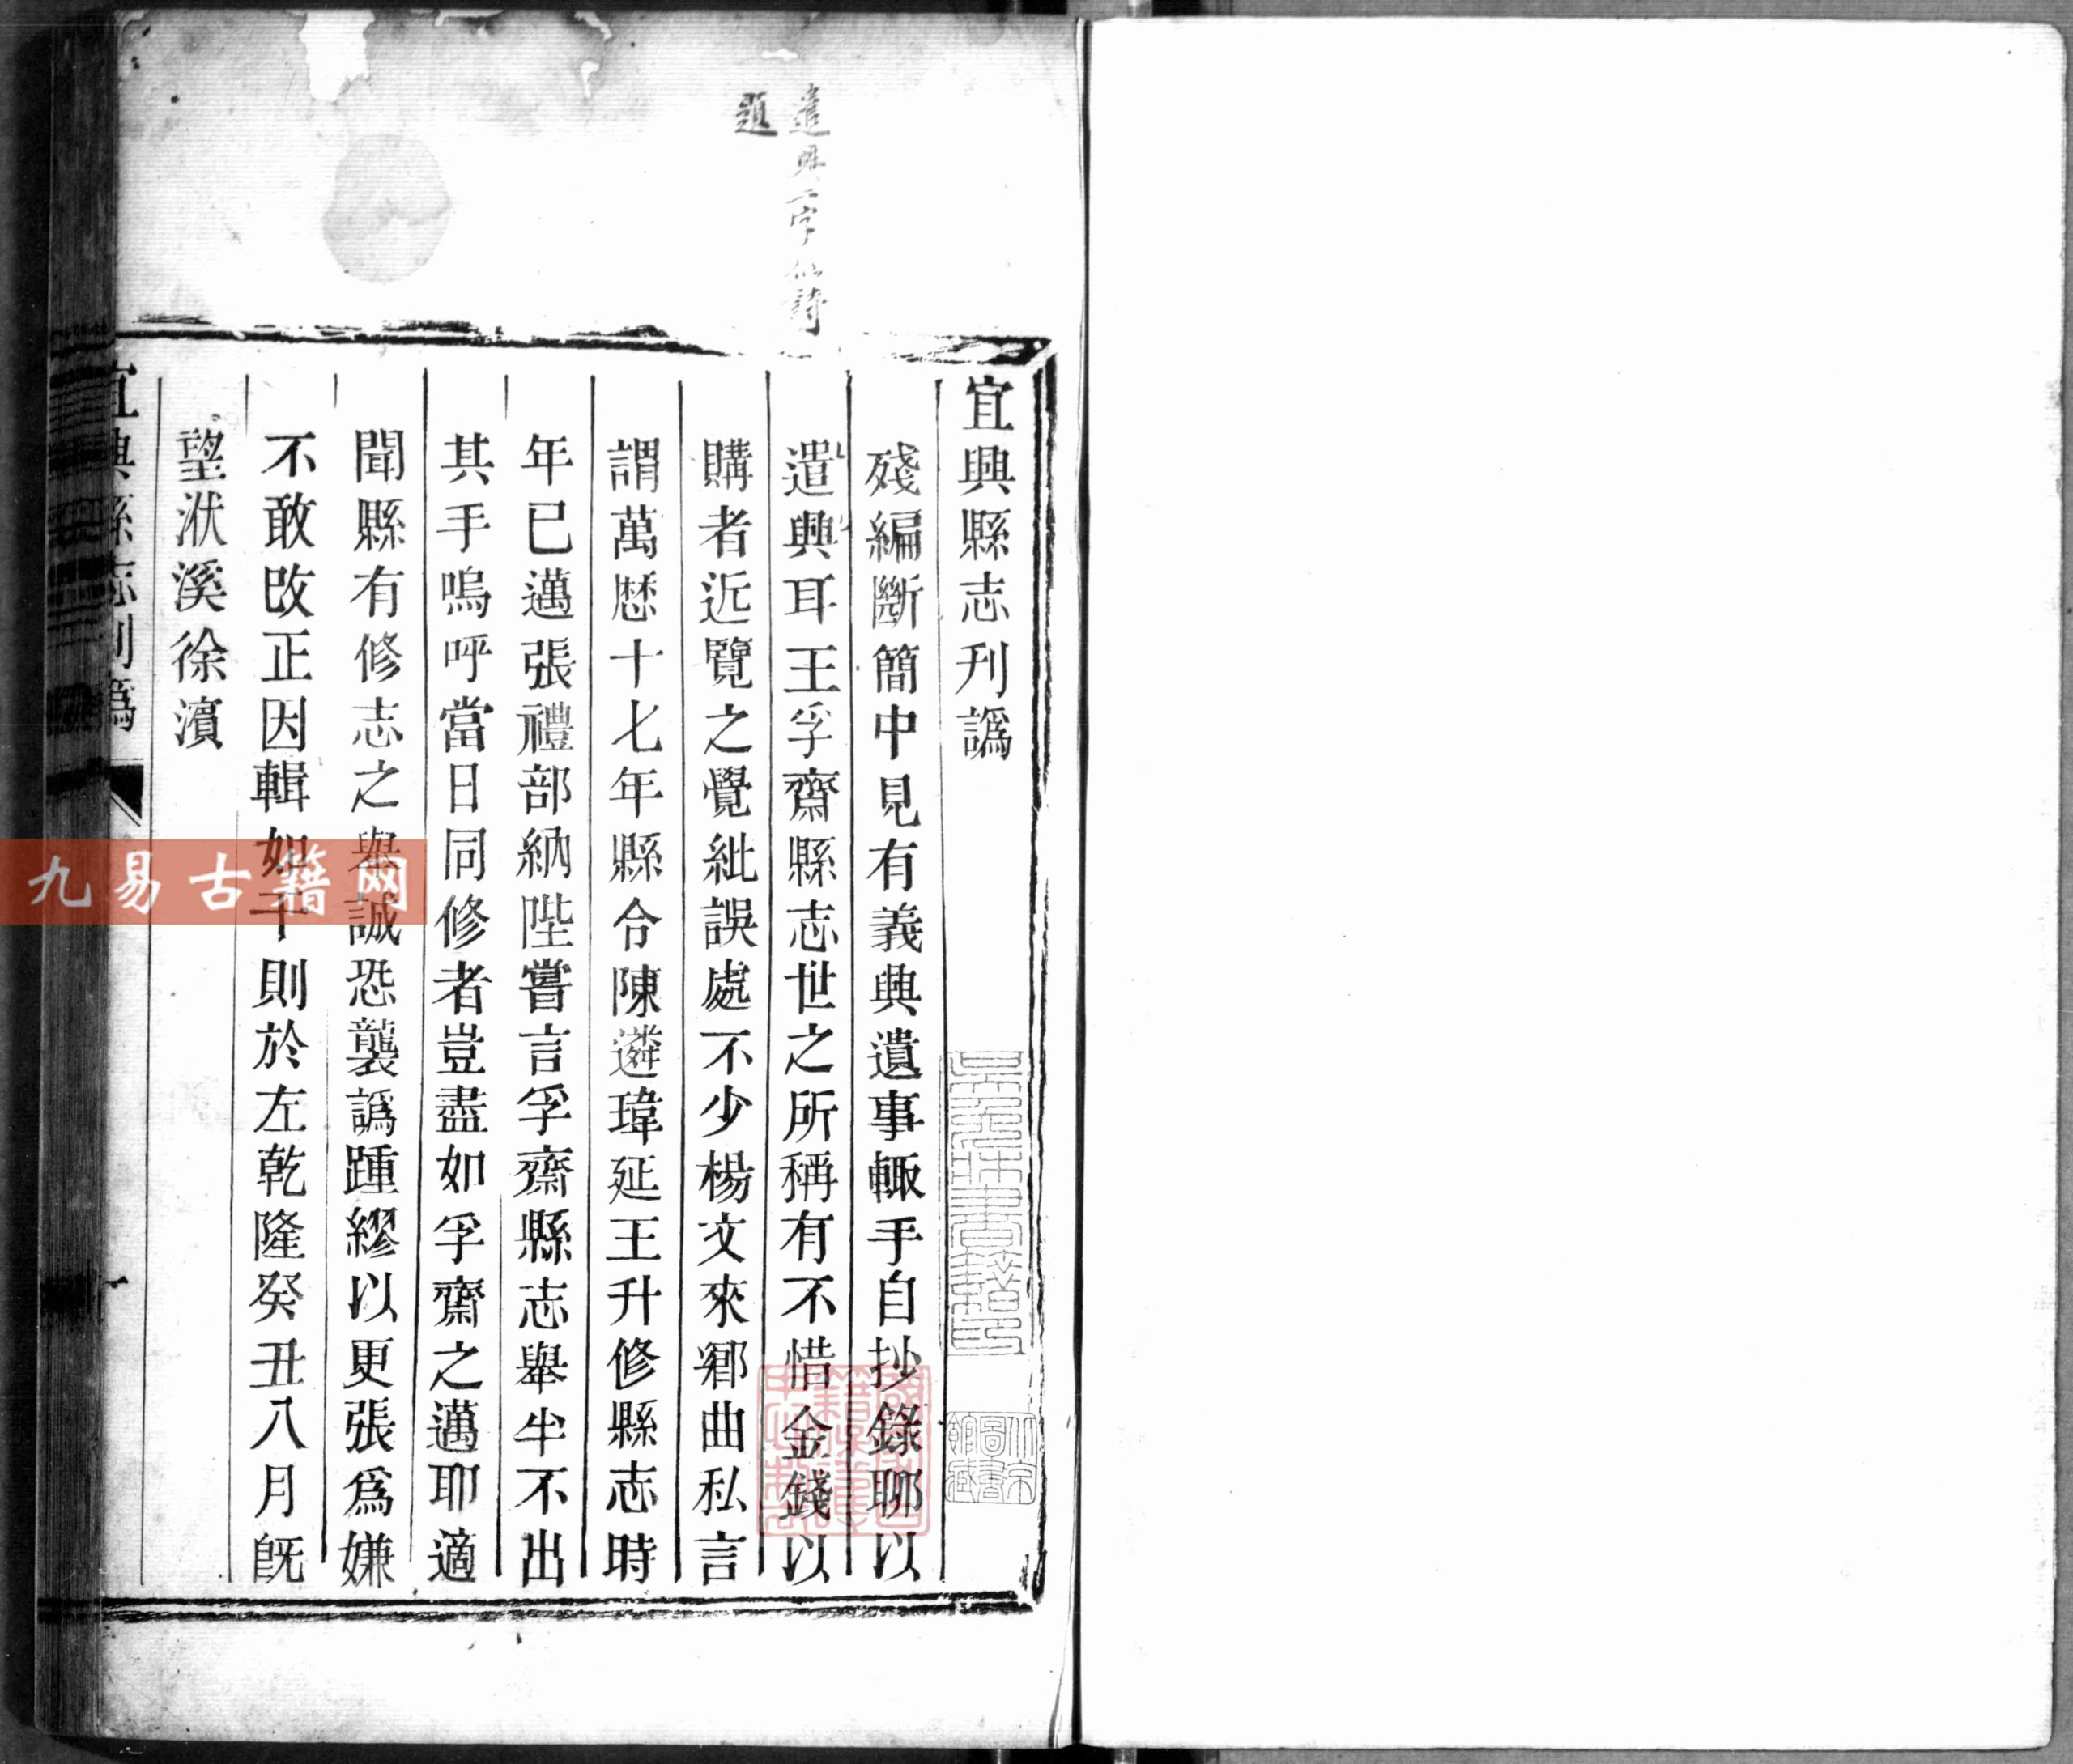 宜興縣志刋譌
殘編斷簡中見有義興遺事輙手自抄錄聊以
遣興耳王孚齋縣志世之所稱有不惜金錢以
購者近覽之覺紕誤處不少楊文來鄉曲私言
謂萬厯十七年縣令陳遴瑋延王升修縣志時
年已邁張禮部納陛嘗言孚齋縣志舉半不出
其手嗚呼當日同修者豈盡如孚齋之邁耶適
聞縣有修志之舉誠恐襲譌踵繆以更張爲嫌
不敢改正因輯如干則於左乾隆癸丑八月旣
望洑溪徐濱
宜興縣志刋譌
一
遣興二字似詩
題
北京圖書館藏
九易古籍网